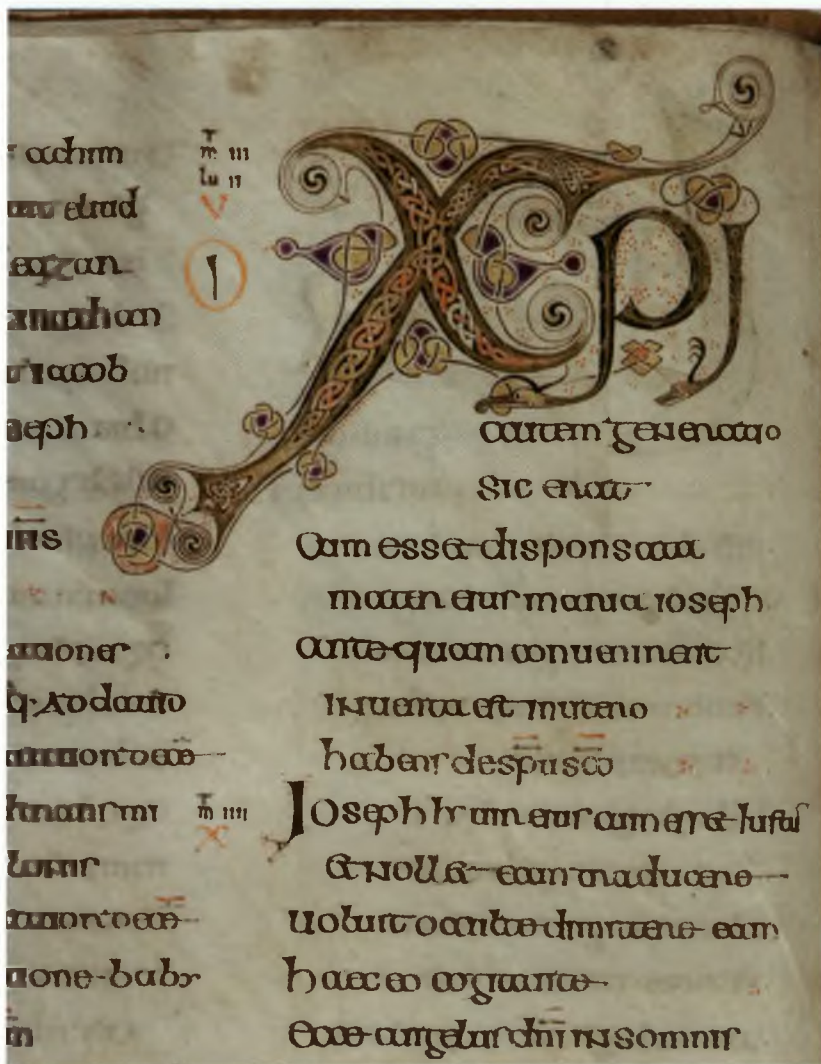 achim
eliud
eazar
atthan
iacob
seph
ationes
q· ad dauid
lonis
m iii
lu ii
V
I
m iiii
X
XPI
autem generatio
sic erat
Cum esset disponsata
mater eius maria ioseph
antequam conuenirent
inuenta est in utero
habens de spu sco
Ioseph h uir eius cum esset iustus
et nollet eam traducere
uoluit occulte dimittere eam
haec eo cogitante
ecce angelus dni in somnis